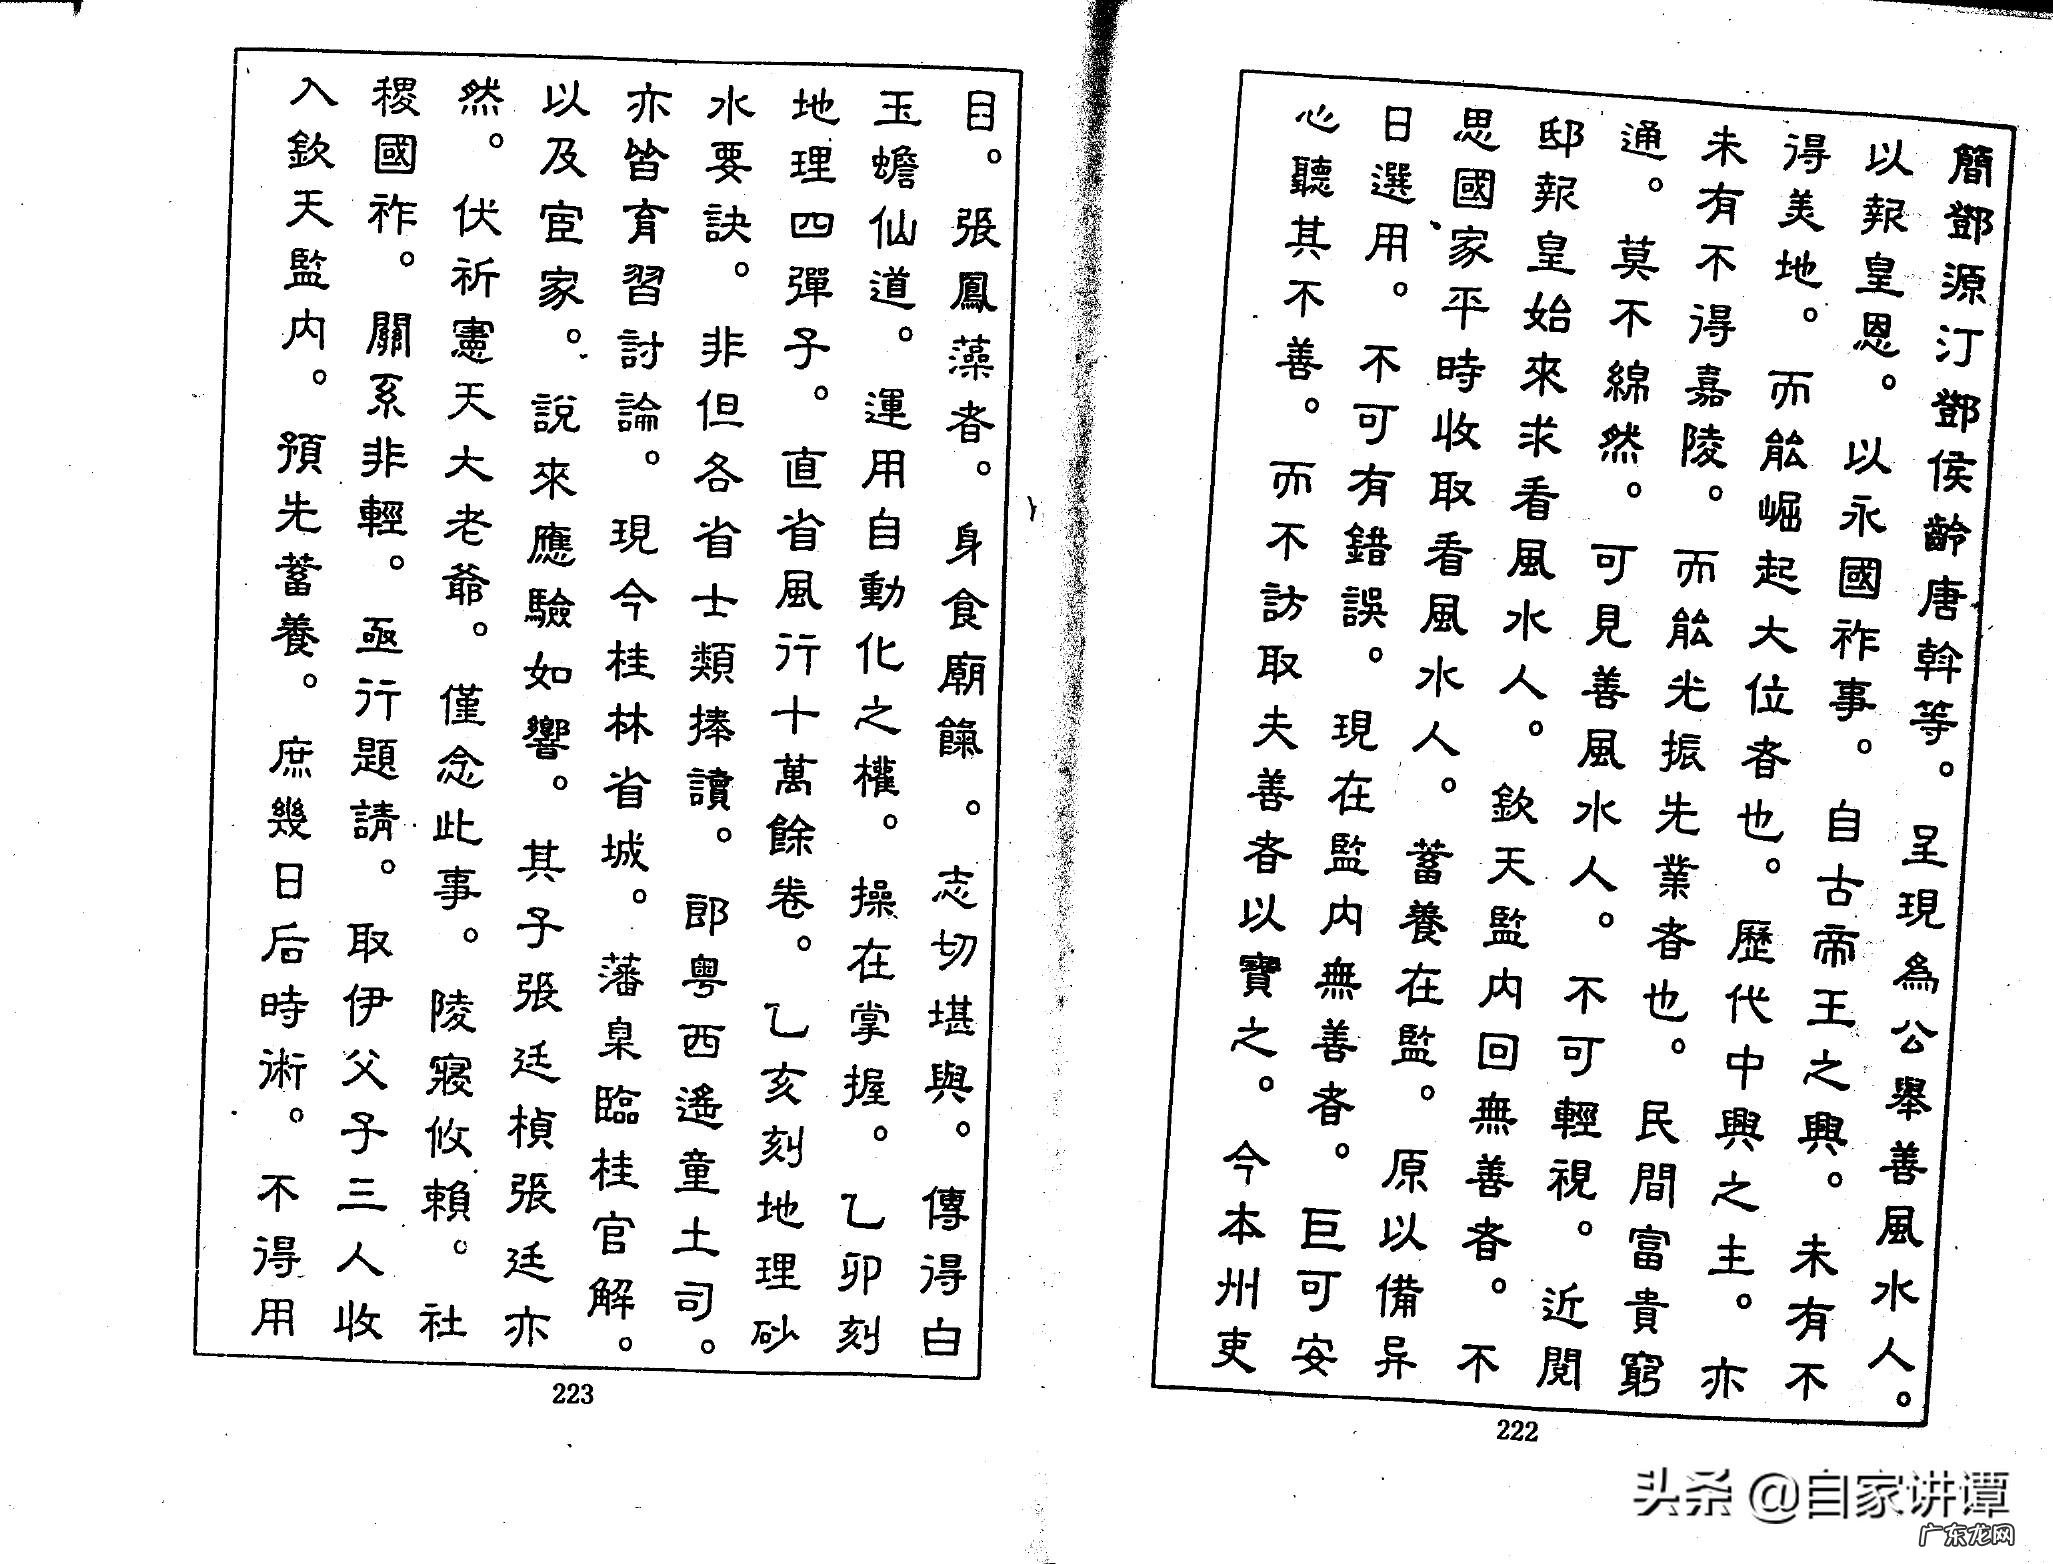 簡鄧源汀鄧侯齡唐斡等。呈現為公舉善風水人。
以報皇恩。以永國祚事。自古帝王之興。未有不
得美地。而能崛起大位者也。歷代中興之主。亦
未有不得嘉陵。而能光振先業者也。民間富貴窮
通。莫不綿然。可見善風水人。不可輕視。近閱
邸報皇始來求看風水人。欽天監内回無善者。不
思國家平時收取看風水人。蓄養在監。原以備异
日選用。不可有錯誤。現在監内無善者。巨可安
心聽其不善。而不訪取夫善者以寶之。今本州吏
222
目。張鳳藻者。身食廟餼。志切堪與。傳得白
玉蟾仙道。運用自動化之權。操在掌握。乙卯刻
地理四彈子。直省風行十萬餘卷。乙亥刻地理砂
水要訣。非但各省士類捧讀。郎粤西遙童土司。
亦皆育習討論。現今桂林省城。藩臬臨桂官解。
以及宦家。說來應驗如響。其子張廷楨張廷亦
然。伏祈憲天大老爺。僅念此事。陵寢攸賴。社
稷國祚。關系非輕。亟行題請。取伊父子三人收
入欽天監内。預先蓄養。庶幾日后時術。不得用
223
头条 @自家讲谭
广东龙网